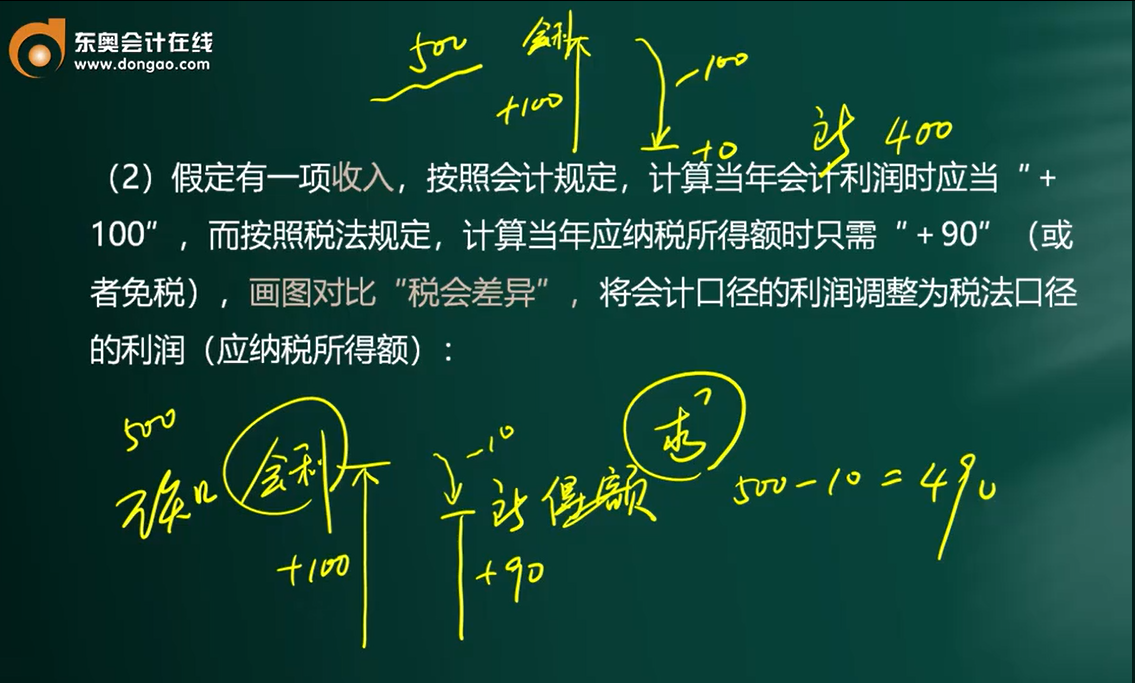 东奥会计在线
www.dongao.com
500 会利 -100
+100 +0 400
（2）假定有一项收入，按照会计规定，计算当年会计利润时应当“+
100”，而按照税法规定，计算当年应纳税所得额时只需“+90”（或
者免税），画图对比“税会差异”，将会计口径的利润调整为税法口径
的利润（应纳税所得额）：
500 -10 求？
会利 得额 500-10=490
+100 +90